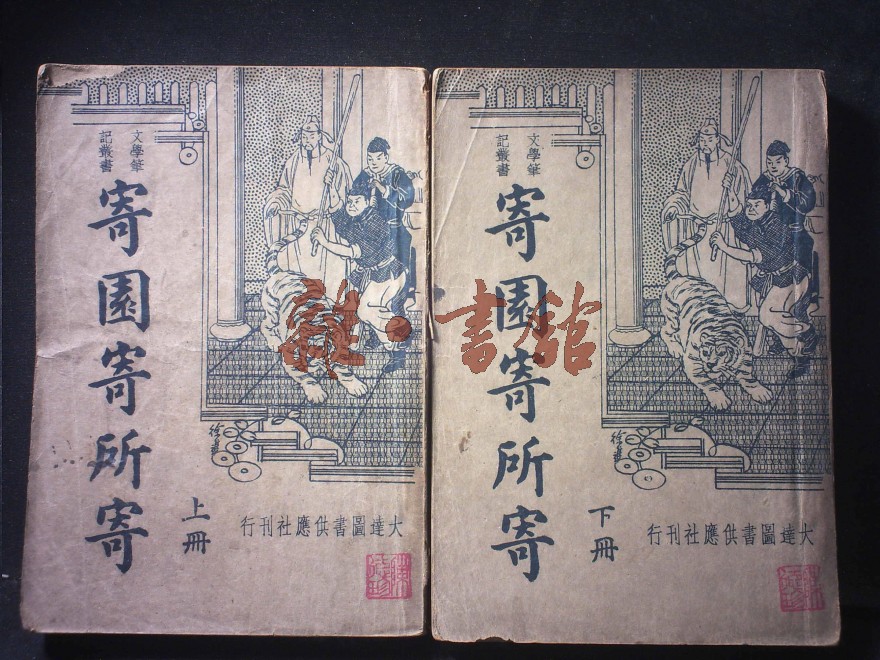 文學筆
記叢書
寄園寄所寄
上冊
大達圖書供應社刊行
文學筆
記叢書
寄園寄所寄
下冊
大達圖書供應社刊行
書舘